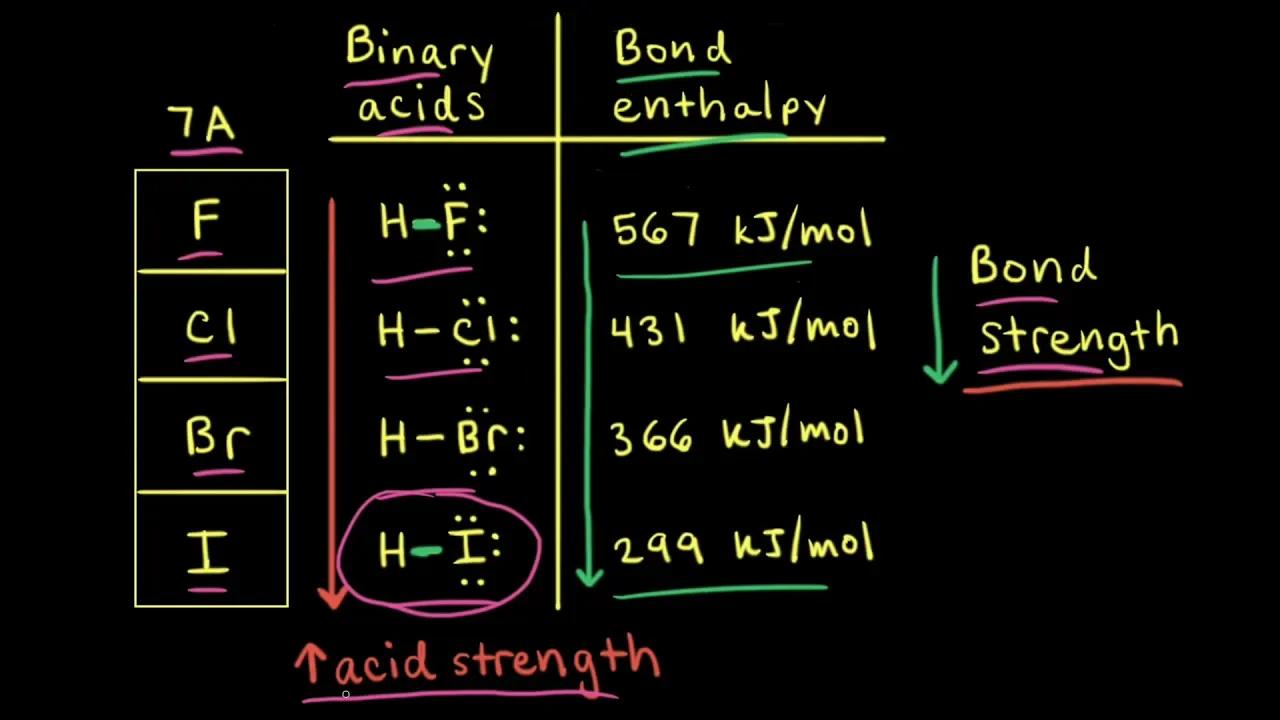 7A
F
Cl
Br
I
Binary
acids
H-F:
H-Cl:
H-Br:
H-I:
↑ acid strength
Bond
enthalpy
567 kJ/mol
431 kJ/mol
366 kJ/mol
299 kJ/mol
Bond
strength